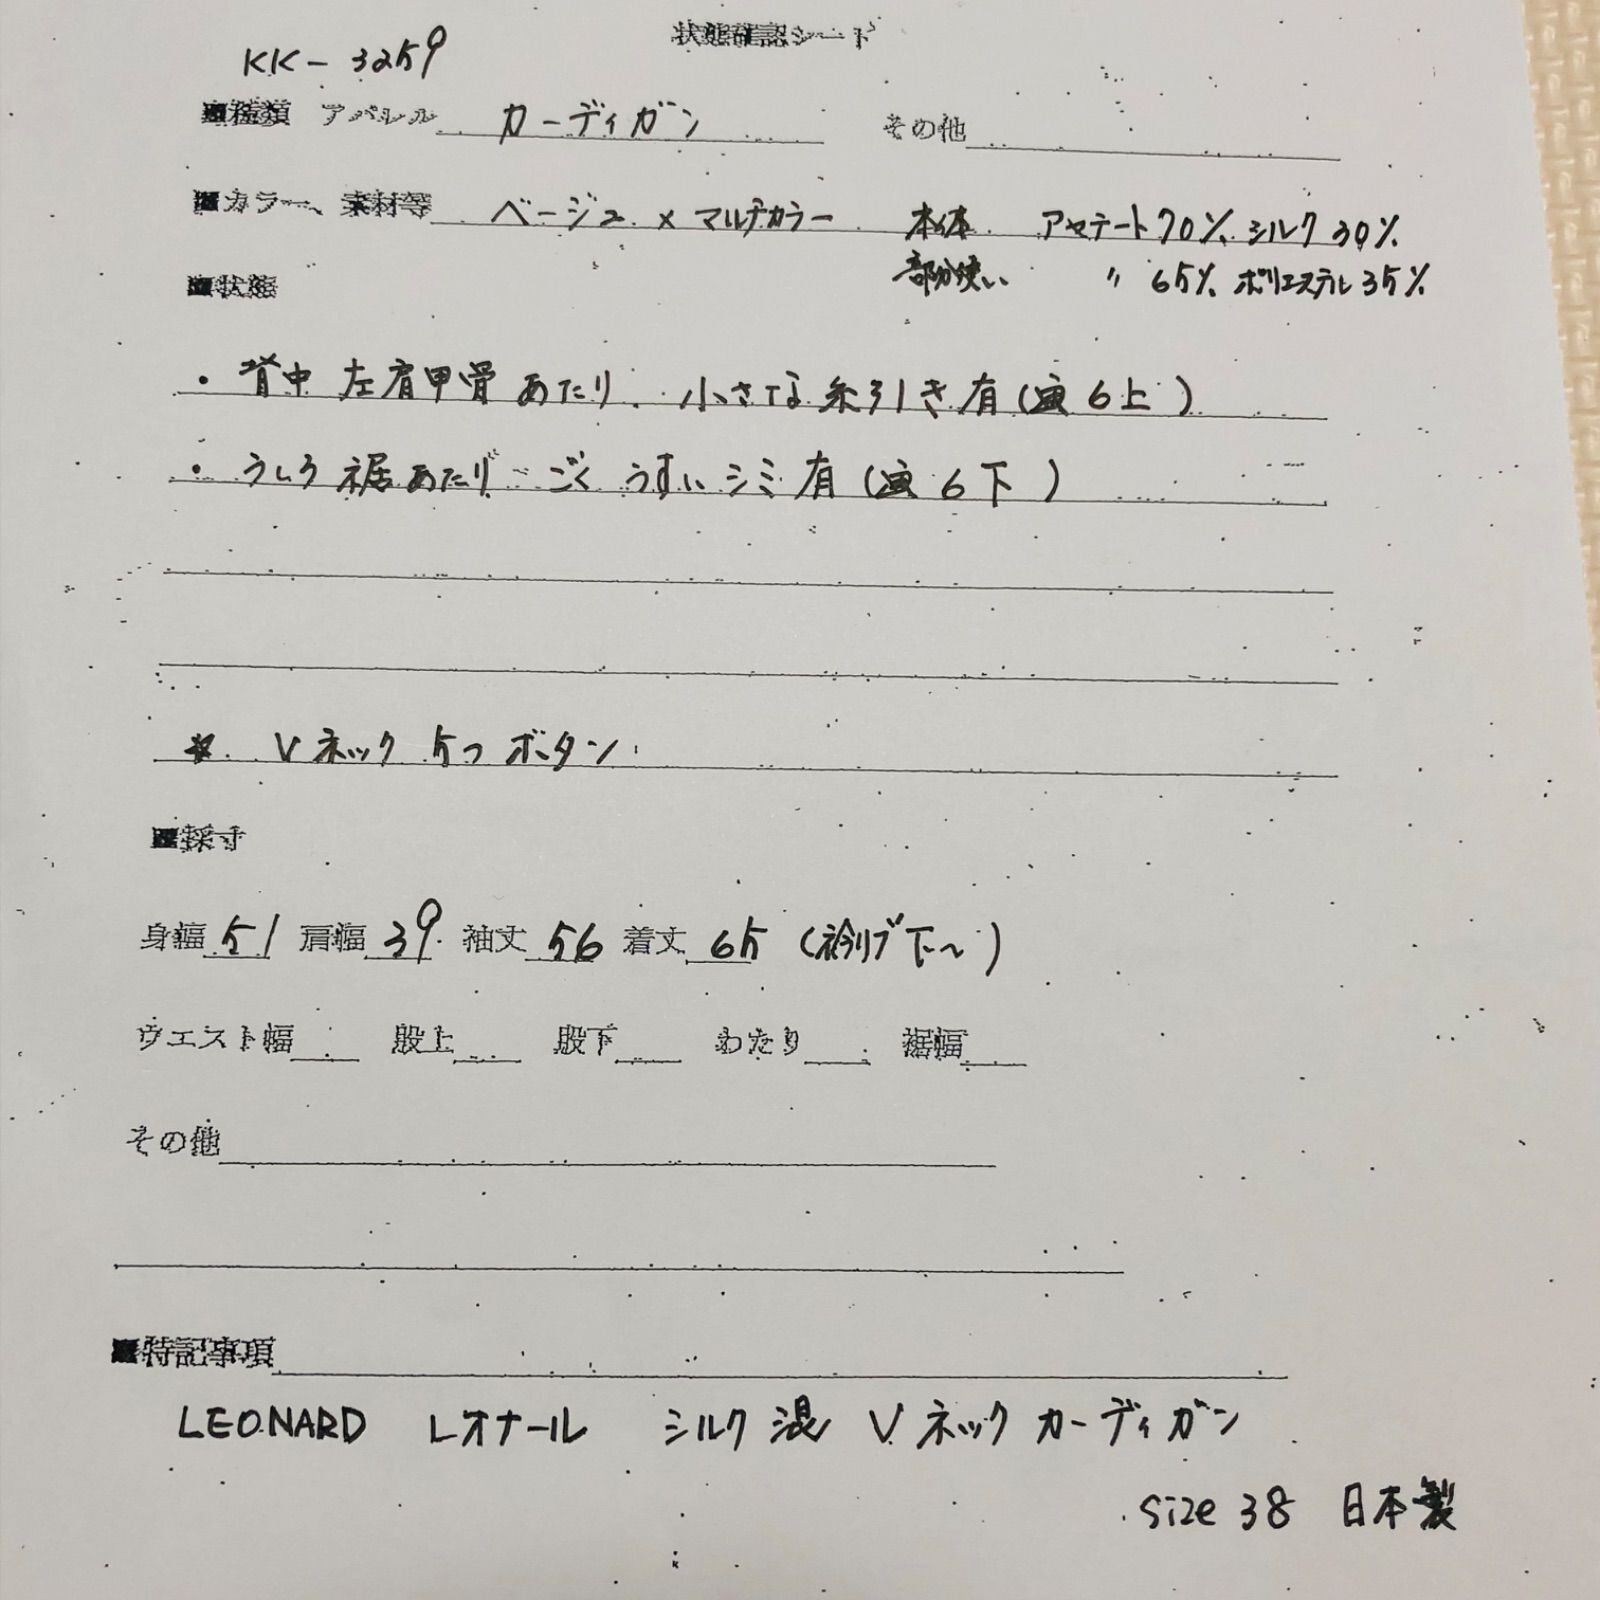 状態確認シート
KK-3259
■種類 アパレル カーディガン その他
■カラー、素材等 ベージュ × マルチカラー 本体 アセテート70% シルク30%
部分使い 〃 65% ポリエステル35%
■状態
・背中 左肩甲骨あたり 小さな糸引き有(画6上)
・うしろ裾あたり ごくうすいシミ有(画6下)
* Vネック 5つボタン
■採寸
身幅 51 肩幅 39 袖丈 56 着丈 65 (衿リブ下~)
ウエスト幅 股上 股下 わたり 裾幅
その他
■特記事項
LEONARD レオナール シルク混 Vネック カーディガン
size 38 日本製